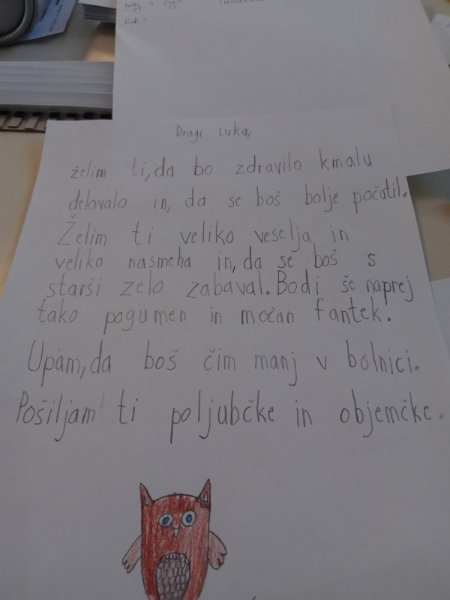 Dragi Luka,
želim ti, da bo zdravilo kmalu
delovalo in, da se boš bolje počutil.
Želim ti veliko veselja in
veliko nasmeha in, da se boš s
starši zelo zabaval. Bodi še naprej
tako pogumen in močan fantek.
Upam, da boš čim manj v bolnici.
Pošiljam ti poljubčke in objemčke.